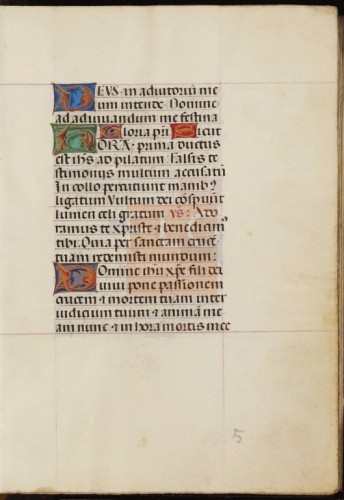 DEUS in adiutoriū me
um intende. Domine
ad adiuvandum me festina
Gloria pr̄i Sicut
HORA prima ductus
est ihs̄ ad pilatum Falsis te
stimoniis multum accusatū
In collo percutiunt manibꝰ
ligatum Vultum dei cōspuūt
lumen celi gratum vs: Ado
ramus te xp̄iste & benedicimꝰ
tibi. Quia per sanctam crucē
tuam redemisti mundum:
Domine ihū xp̄e fili dei
vivi pone passionem
crucem & mortem tuam inter
iudicium tuum & animā me
am nunc & in hora mortis mee
5